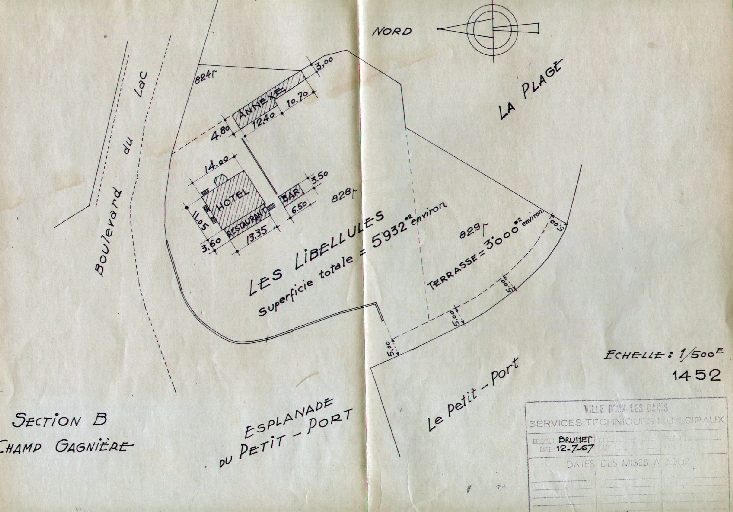 NORD
LA PLAGE
824p
3,00
ANNEXE
4.80
12.40
10.70
14.00
HOTEL
BAR
3.50
6.50
11.05
RESTAURANT
3.60
13.35
828p
829p
Boulevard du Lac
LES LIBELLULES
Superficie totale = 5932 m2 environ
TERRASSE = 3000 m2 environ
5.00
5.00
5.00
5.00
ECHELLE : 1/500E
1452
Le Petit-Port
ESPLANADE
DU PETIT-PORT
SECTION B
CHAMP GAGNIÈRE
VILLE D'AIX-LES-BAINS
SERVICES TECHNIQUES MUNICIPAUX
BRUNET
12-7-67
DATES DES MISES A JOUR